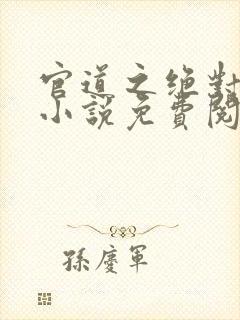 官道之绝對
小說免費閱
孫慶軍